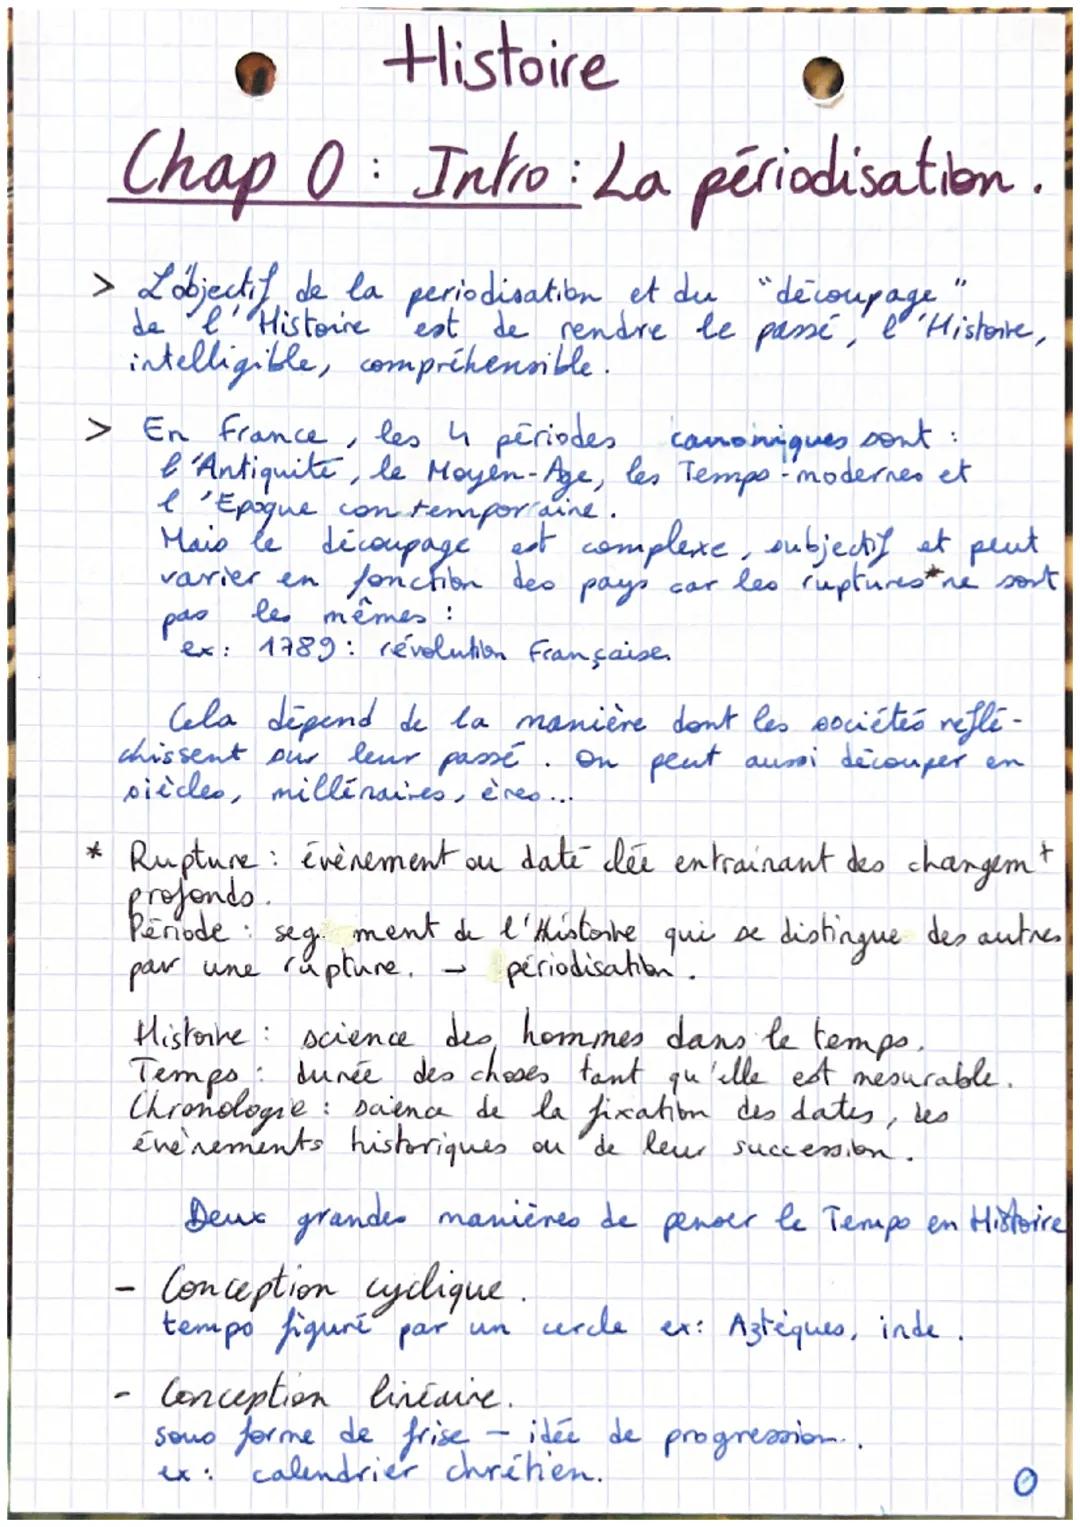 Histoire
Chap 0 : Intro : La périodisation.
> L'objectif de la periodisation et du "découpage"
de l'Histoire est de rendre le passé, l'Histoire,
intelligible, compréhensible.
> En France, les 4 périodes canoniques sont :
l'Antiquité, le Moyen-Age, les Temps-modernes et
l'Epoque contemporaine.
Mais le découpage est complexe, subjectif et peut
varier en fonction des pays car les ruptures* ne sont
pas les mêmes :
ex: 1789: révolution Française.
Cela dépend de la manière dont les sociétés réflé-
chissent sur leur passé. On peut aussi découper en
siècles, millénaires, ères...
* Rupture : évènement ou date clée entrainant des changemt
profonds.
Période : segment de l'Histoire qui se distingue des autres
par une rupture. → périodisation.
Histoire : science des hommes dans le temps.
Temps : durée des choses tant qu'elle est mesurable.
Chronologie : science de la fixation des dates, des
évènements historiques ou de leur succession.
Deux grandes manières de penser le Temps en Histoire
- Conception cyclique.
temps figuré par un cercle ex: Aztèques, inde.
- Conception linéaire.
sous forme de frise - idée de progression..
ex : calendrier chrétien.
0